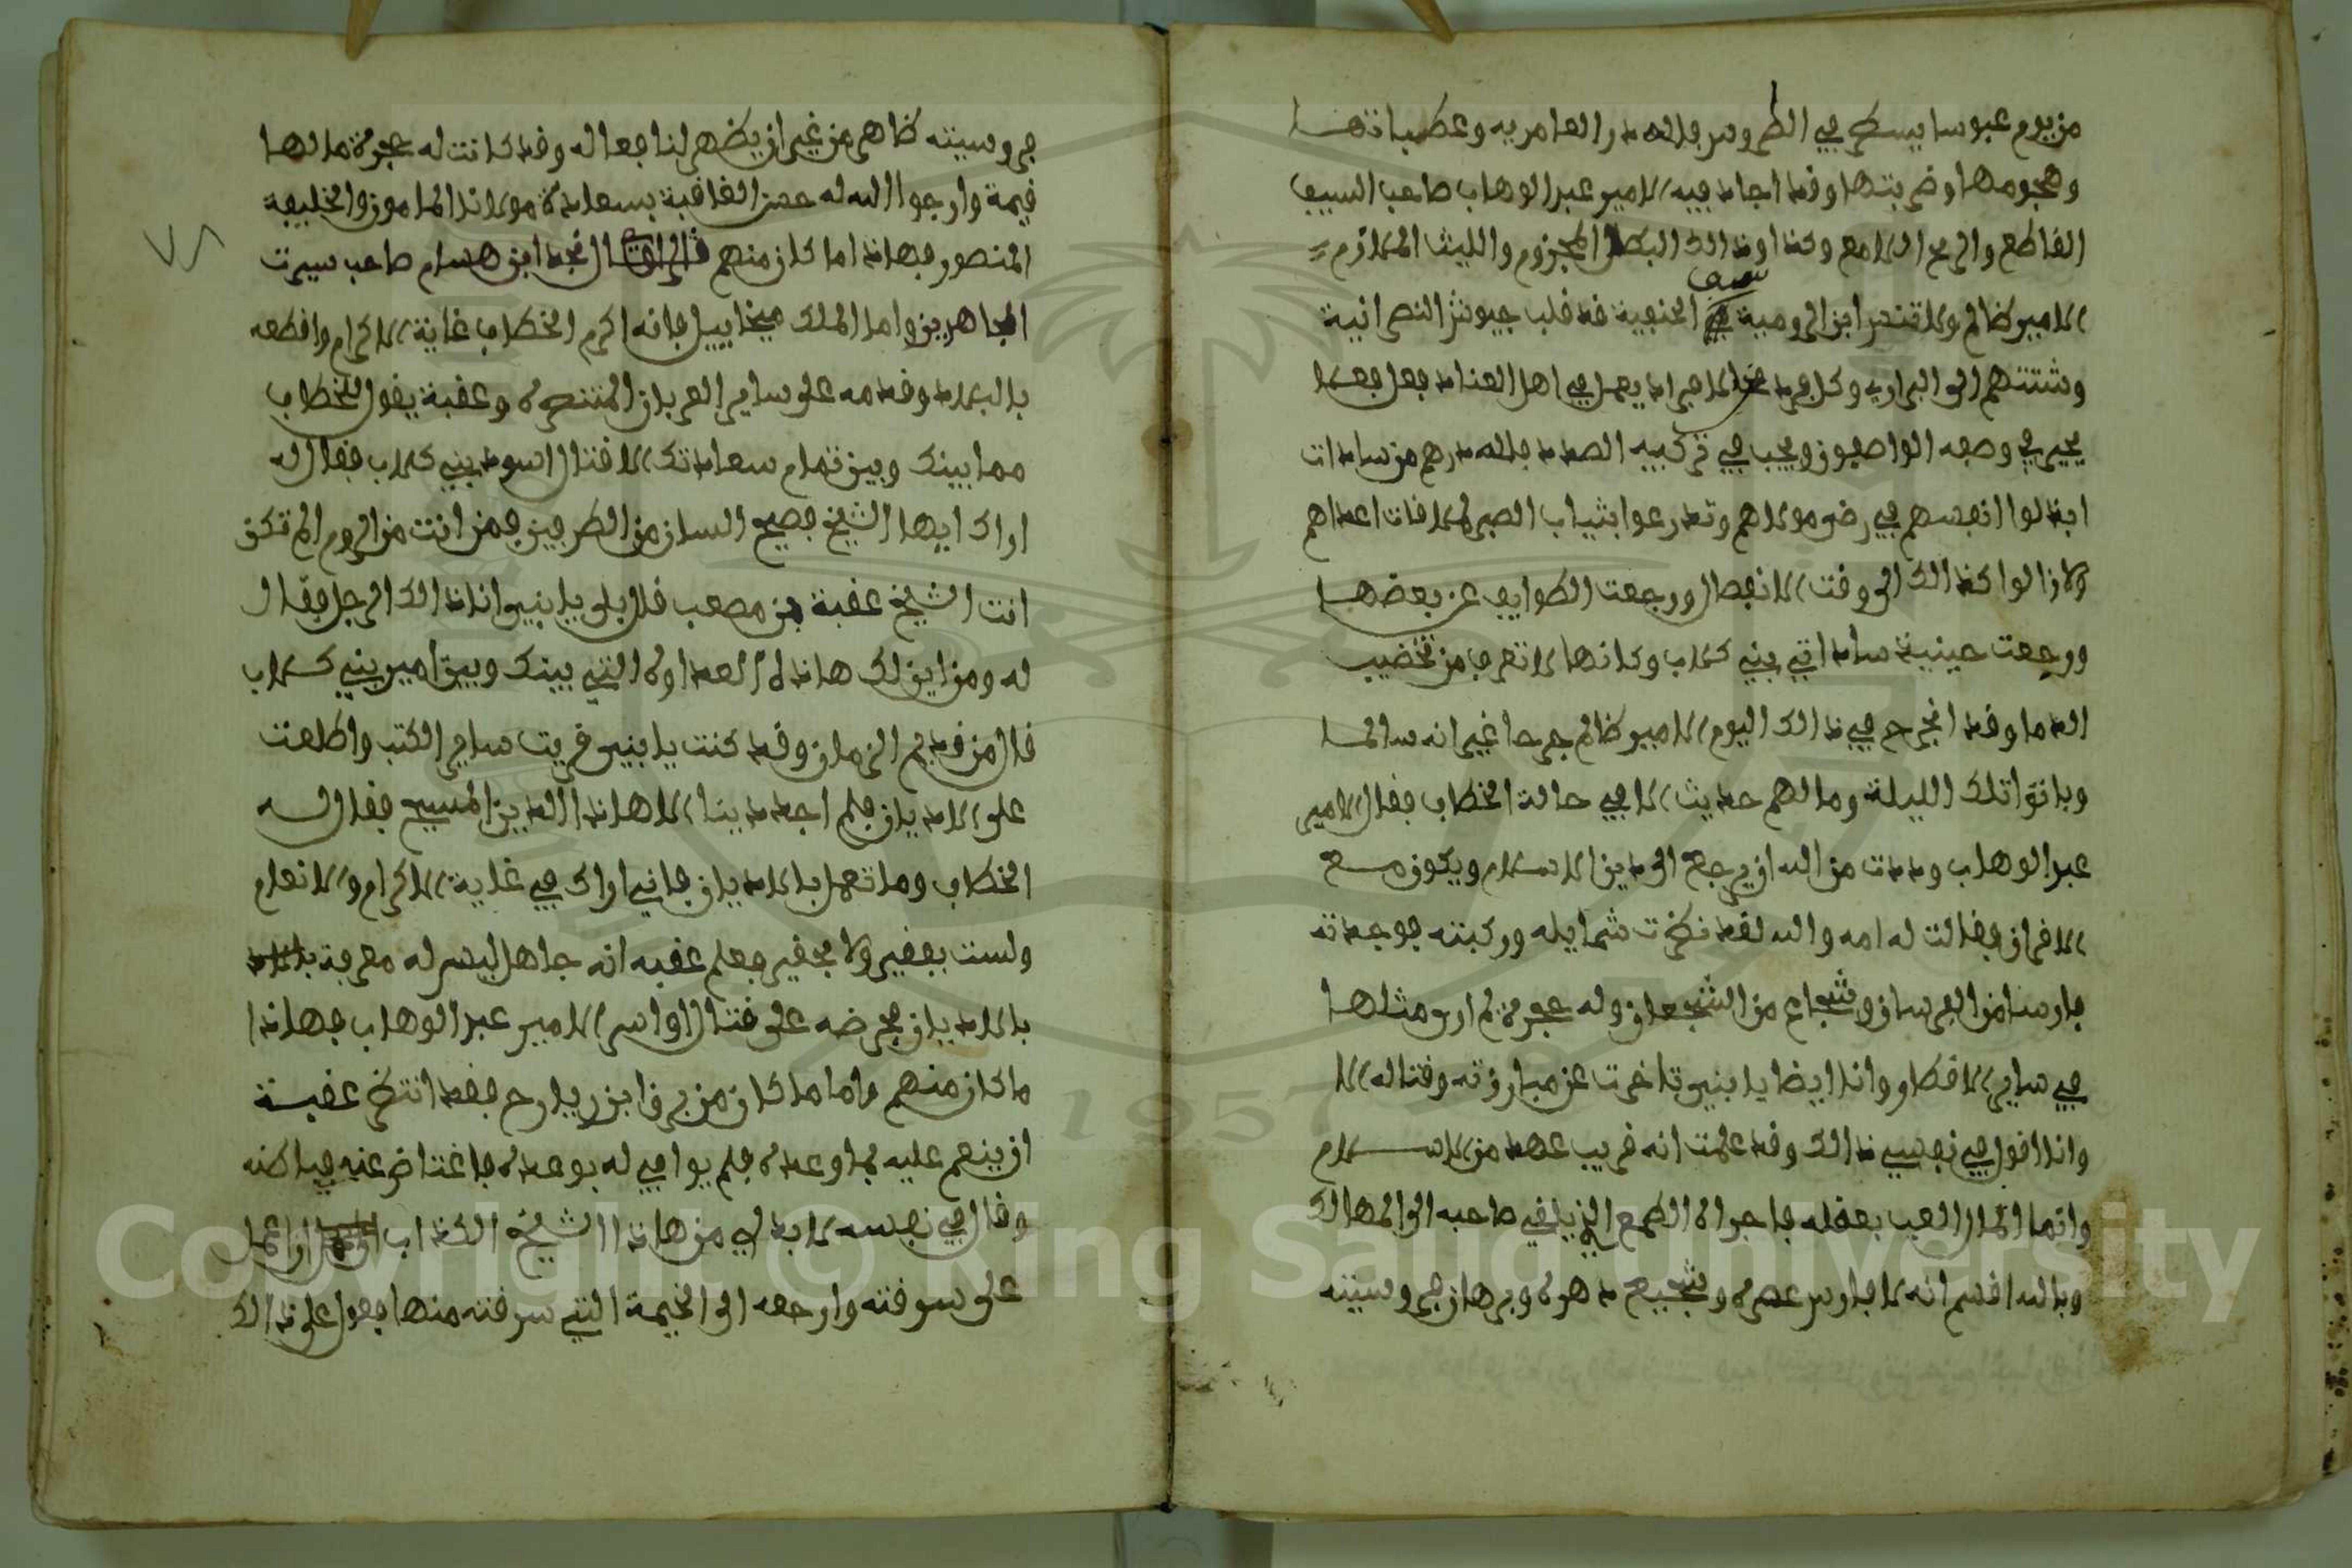 من يوم عبوسا يسطر في الطروس فلله در العامرية وعطباتها
وهجومها وضربتها وقد اجاد فيه الامير عبد الوهاب صاحب السيف
القاطع والرمح اللامع وكذاوذالك البطل المجزوم والليث الملازم
الامير ظالم ولا تنس ابن الرومية سيف الحنفية قد قلب جيوش النصرانية
وشتتهم الى البراري وكل فرد من الافراد يعمل في اهل العناد فعل فعلا
يحير في وصفه الواصفون ويجب في تركيبه الصدد فلله درهم من سادات
ابذلوا انفسهم في رضى مولاهم وتدرعوا بثياب الصبر لملاقات اعداهم
ولازالوا كذالك الى وقت الانفصال ورجعت الطوايف عن بعضها
ورجعت حينيذ سادات بني كلاب وكانها لا تعرف من تخضيب
الدما وقد انجرح في ذالك اليوم الامير ظالم جرحا غير انه سالما
وباتوا تلك الليلة وما لهم حديث الا في حالة الخطاب فقال الامير
عبد الوهاب وددت من الله ان يرجع الى دين الاسلام ويكون مع
الاقران فقالت له امه والله لقد نظرت شمايله وركبته فوجدته
فارسا من الفرسان وشجاع من الشجعان وله حجرة لم ارى مثلها
في ساير الاقطار وانا ايضا يا بني تاخرت عن مبارزته وقتاله الا
وانا اقول في نفسي ذالك وقد علمت انه قريب عهد من الاسلام
وانما المال العب بعقله فاجراه الطمع الذي يلقي صاحبه الى المهالك
وبالله اقسم انه لا فارس عصره وشجيع دهره وبرهان فروسيته
فروسيته ظاهر من غير ان يظهر لنا فعاله وقد كانت له حجرة ما لها
قيمة وارجوا الله له حسن العاقبة بسعادة مولانا المامون والخليفة
المنصور فهاذا ما كان منهم قال نجد ابن هسام صاحب سيرت
المجاهدين واما الملك ميخاييل فانه اكرم الخطاب غاية الاكرام واقطعه
بالبلاد وقدمه على ساير العربان المتنصره وعقبة يقول للخطاب
مما بينك وبين تمام سعادتك الا قتال اسود بني كلاب فقال له
اراك ايها الشيخ فصيح السان من الطرفين فمن انت من الروم الم تكن
انت الشيخ عقبة بن مصعب قال بلى يا بني انا ذالك الرجل فقال
له ومن اين لك هاذه العداوه التي بينك وبين امير بني كلاب
قال من قديم الزمان وقد كنت يا بني قريت ساير الكتب واطلعت
على الاديان فلم اجد دينا الا هاذا الدين المسيح فقال له
الخطاب وما تعمل بالاديان فاني اراك في غاية الاكرام والانعام
ولست بفقير ولا بحقير فعلم عقبه انه جاهل ليس له معرفة
بالاديان فحرضه على قتال الامير عبد الوهاب فهاذا
ما كان منهم واما ما كان من ابن رياح فقد انتظر عقبة
ان ينعم عليه بما وعده فلم يوافي له بوعده فاغتاض عنه في باطنه
وقال في نفسه لا بد لي من هاذا الشيخ الكذاب ان اعمل
على سرقته وارجعه الى الخيمة التي سرقته منها فعول على ذالك